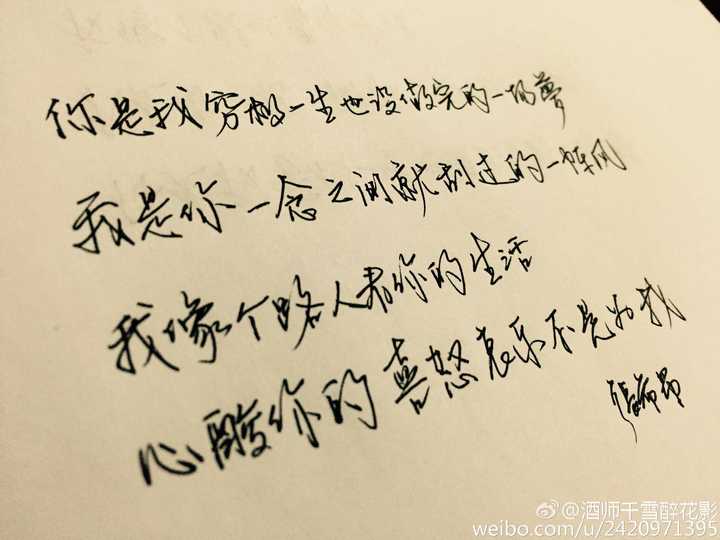 你是我穷极一生也没做完的一场夢
我是你一念之间就刮过的一阵风
我像个路人看你的生活
心酸你的喜怒哀乐不是为我
@酒师千雪醉花影
weibo.com/u/2420971395